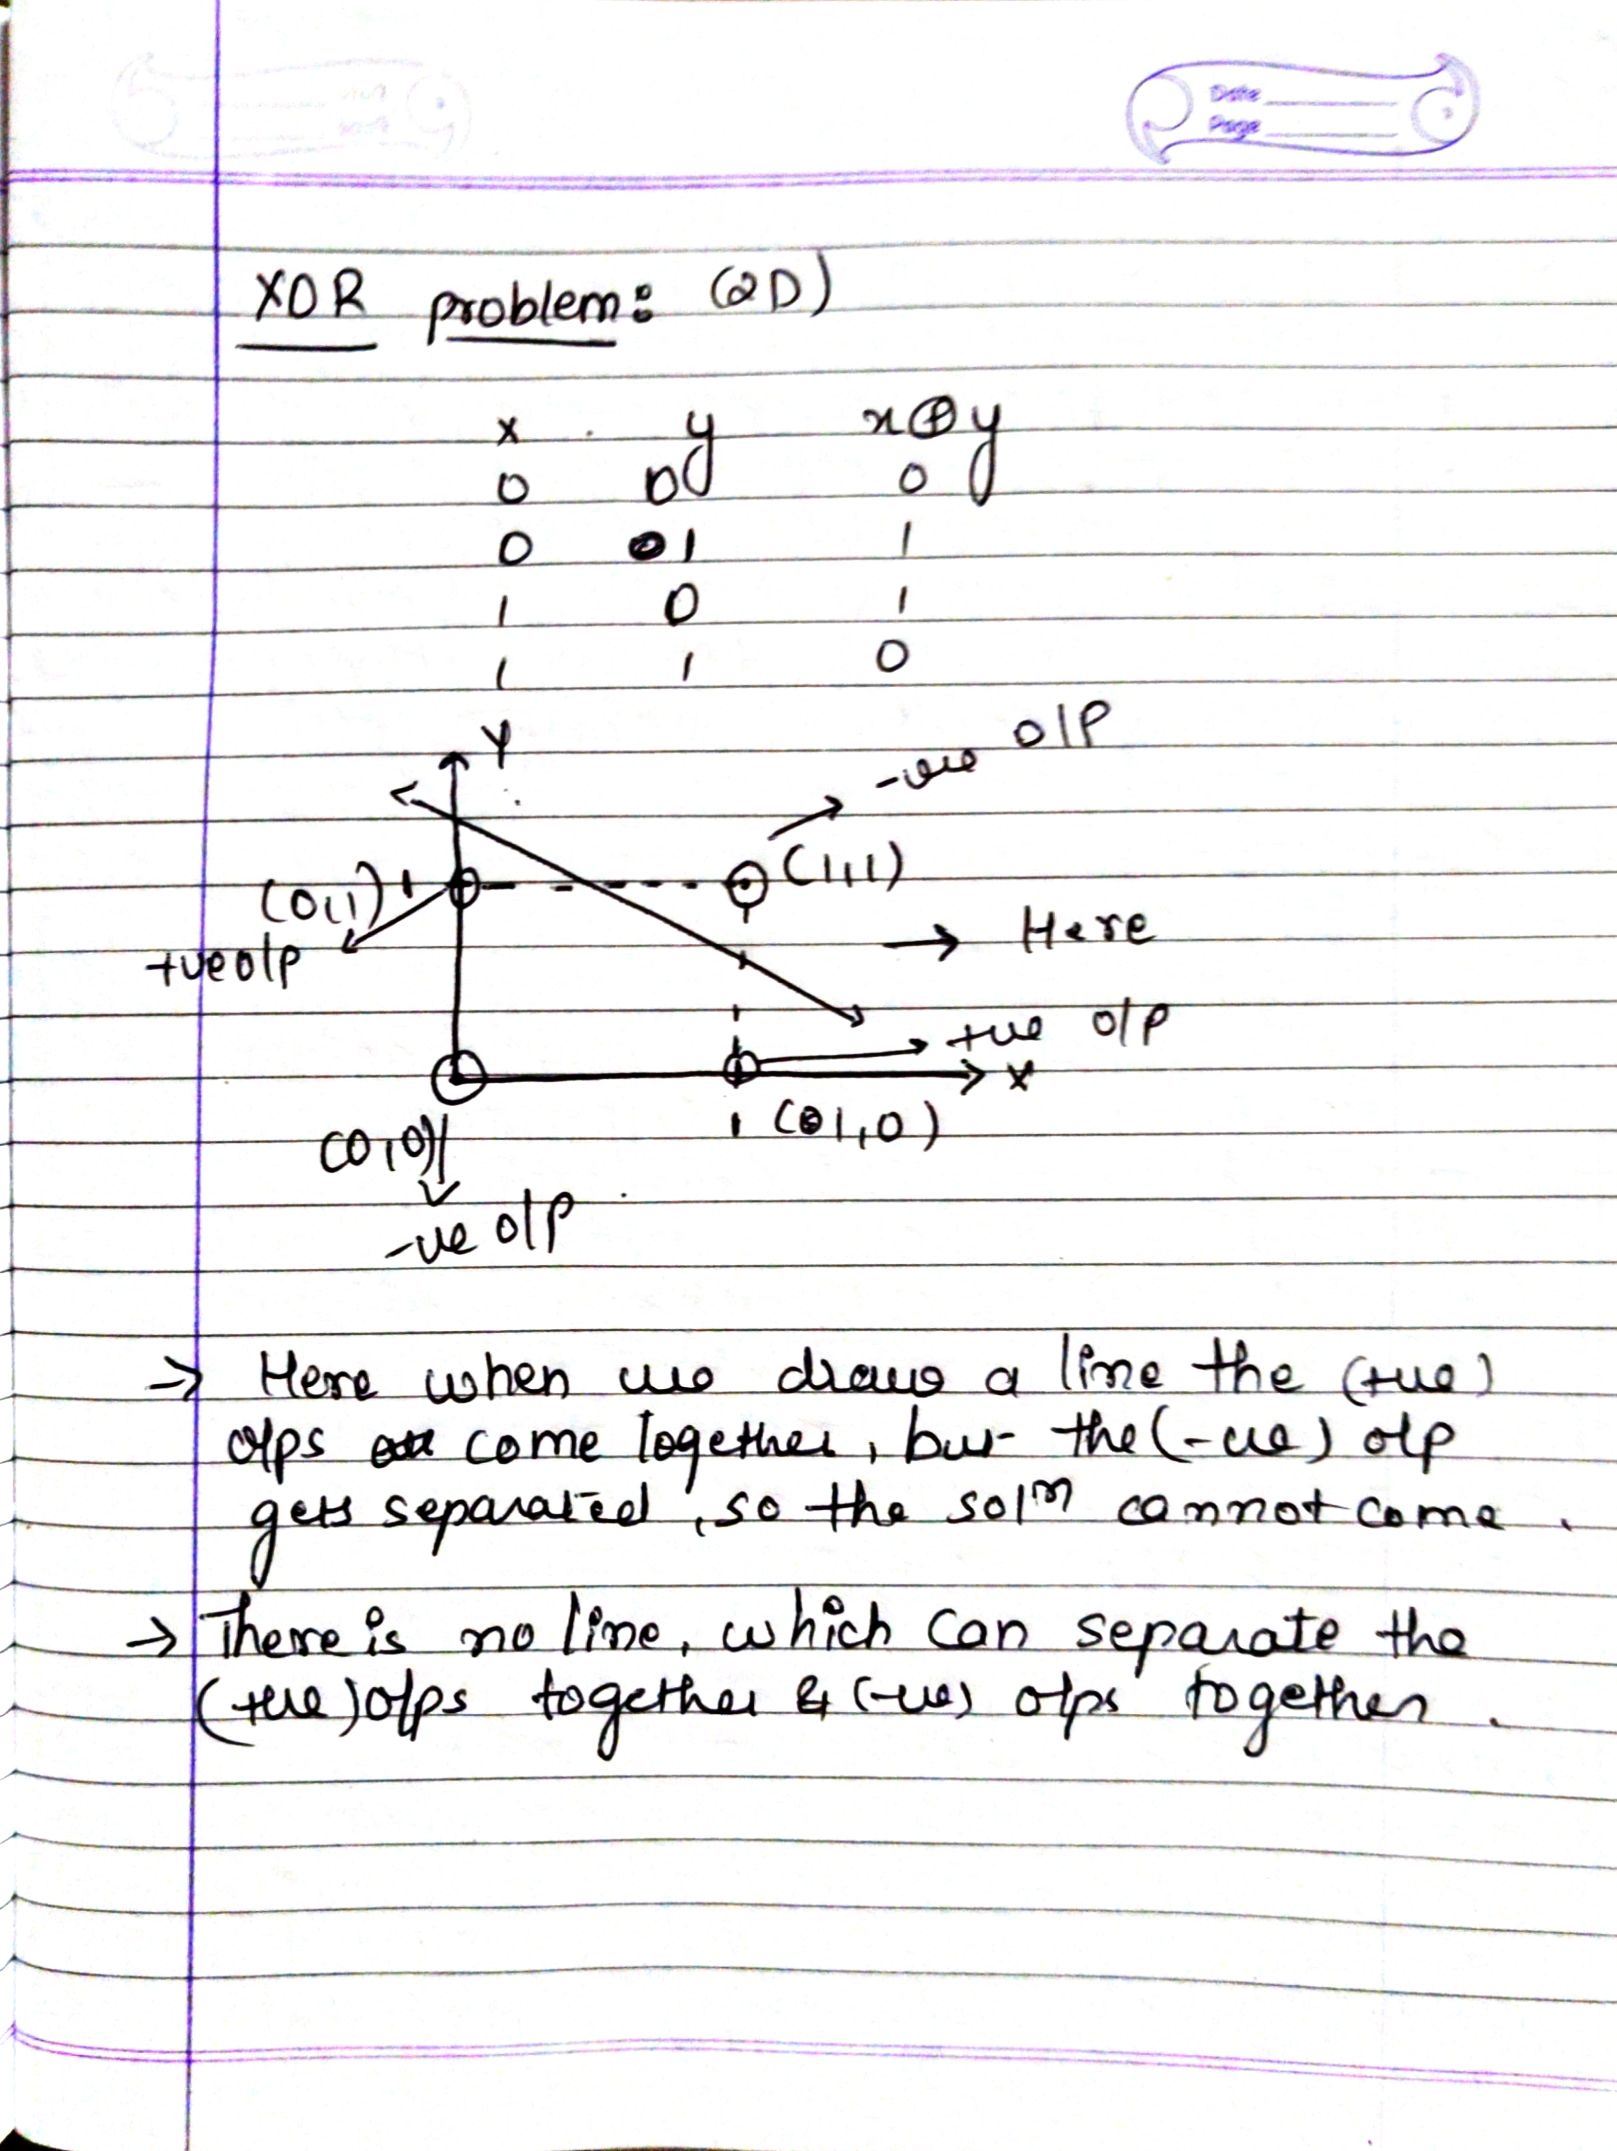 Date
Page
XOR problem: (2D)
x y x⊕y
0 0 0
0 1 1
1 0 1
1 1 0
Y
-ve O/P
(0,1) 1 (1,1)
+ve o/p
→ Here
+ve O/P
X
(0,0) 1 (1,0)
-ve O/P
→ Here when we draw a line the (+ve)
o/ps come together, but the (-ve) o/p
gets separated, so the solⁿ cannot come.
→ There is no line, which can separate the
(+ve) o/ps together & (-ve) o/ps together.